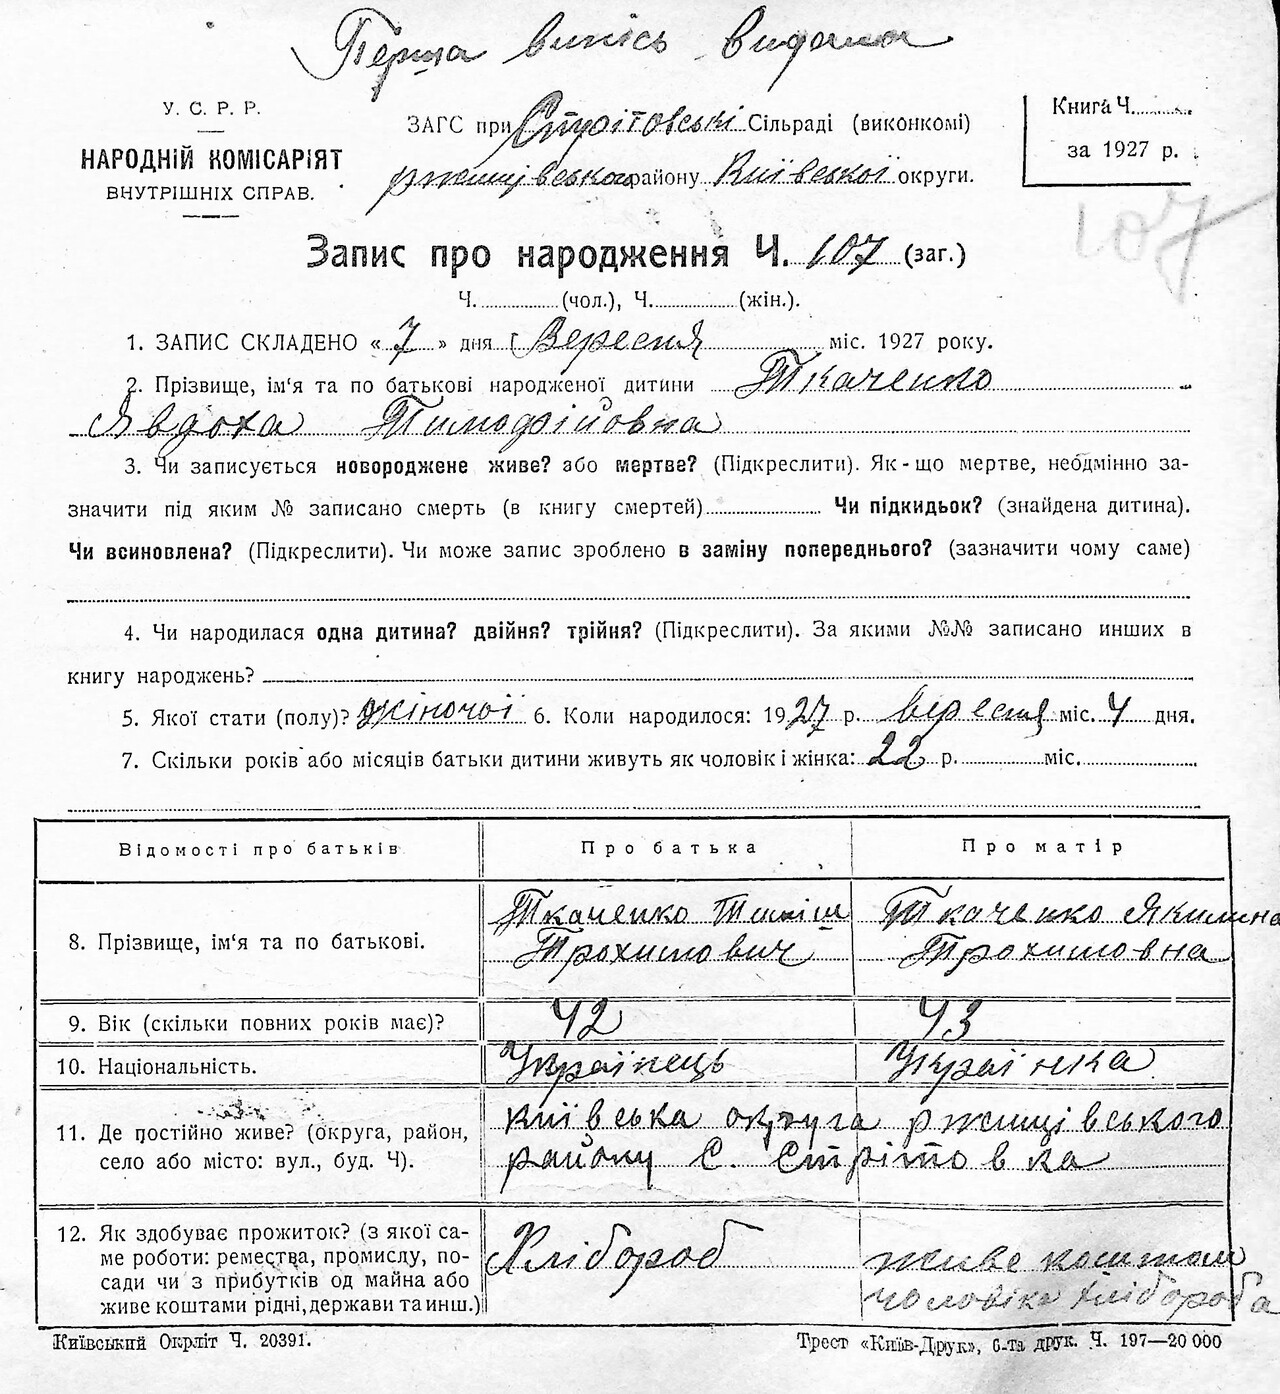 Перша випись видана
У. С. Р. Р.
НАРОДНІЙ КОМІСАРІЯТ
ВНУТРІШНІХ СПРАВ.
ЗАГС при Стрітовські Сільраді (виконкомі)
ржищівського району Київської округи.
Книга Ч.
за 1927 р.
107
Запис про народження Ч. 107 (заг.)
Ч. (чол.), Ч. (жін.).
1. ЗАПИС СКЛАДЕНО « 7 » дня Вересня міс. 1927 року.
2. Прізвище, ім'я та по батькові народженої дитини Ткаченко
Явдоха Тимофійовна
3. Чи записується новороджене живе? або мертве? (Підкреслити). Як-що мертве, необдмінно за-
значити під яким № записано смерть (в книгу смертей) Чи підкидьок? (знайдена дитина).
Чи всиновлена? (Підкреслити). Чи може запис зроблено в заміну попереднього? (зазначити чому саме)
4. Чи народилася одна дитина? двійня? трійня? (Підкреслити). За якими №№ записано инших в
книгу народжень?
5. Якої стати (полу)? жіночої 6. Коли народилося: 1927 р. вересня міс. 4 дня.
7. Скільки років або місяців батьки дитини живуть як чоловік і жінка: 22 р. міс.
Відомості про батьків
Про батька
Про матір
8. Прізвище, ім'я та по батькові.
Ткаченко Тиміш
Трохимович
Ткаченко Якилина
Трохимовна
9. Вік (скільки повних років має)?
42
43
10. Національність.
Українець
Українка
11. Де постійно живе? (округа, район,
село або місто: вул., буд. Ч).
київська округа ржищівського
району с. Стрітовка
12. Як здобуває прожиток? (з якої са-
ме роботи: ремества, промислу, по-
сади чи з прибутків од майна або
живе коштами рідні, держави та инш.)
Хлібороб
живе коштом
чоловіка хлібороба
Київський Окрліт Ч. 20391.
Трест «Київ-Друк», 6-та друк. Ч. 197—20 000